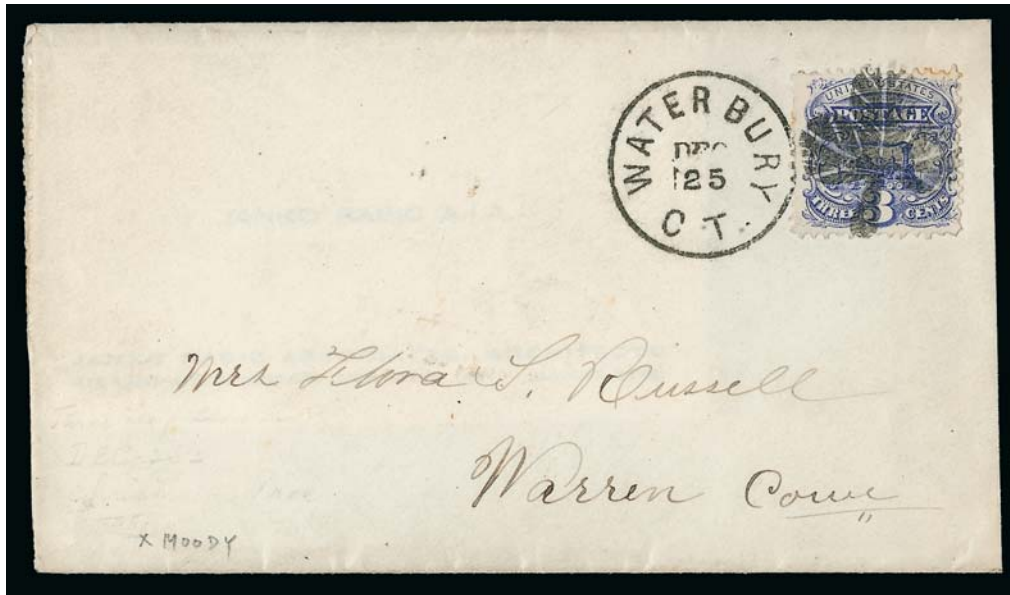 WATERBURY
DEC
25
CT.
UNITED STATES
POSTAGE
THREE 3 CENTS
Mrs Flora S. Russell
Warren Conn
X MOODY